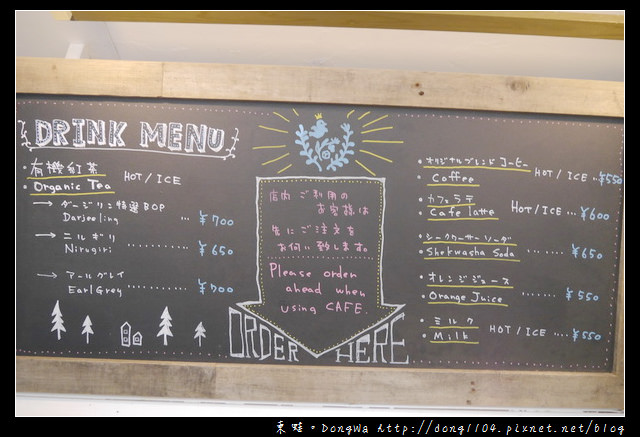 DRINK MENU
・有機紅茶
・Organic Tea
HOT / ICE
→ ダージリン特選BOP
Darjeeling ... ¥700
→ ニルギリ
Nirugiri ...... ¥650
→ アールグレイ
Earl Grey ... ¥700
店内ご利用の
お客様は
先にご注文を
お伺い致します。
Please order
ahead when
using CAFE.
ORDER HERE
・オリジナルブレンドコーヒー
・Coffee
HOT / ICE ...¥550
・カフェラテ
・Cafe latte
HOT / ICE ... ¥600
・シークワーサーソーダ
・Shekwasha Soda ....... ¥650
・オレンジジュース
・Orange Juice ........ ¥550
・ミルク
・Milk
HOT / ICE .... ¥550
DongWa http://dong1104.pixnet.net/blog